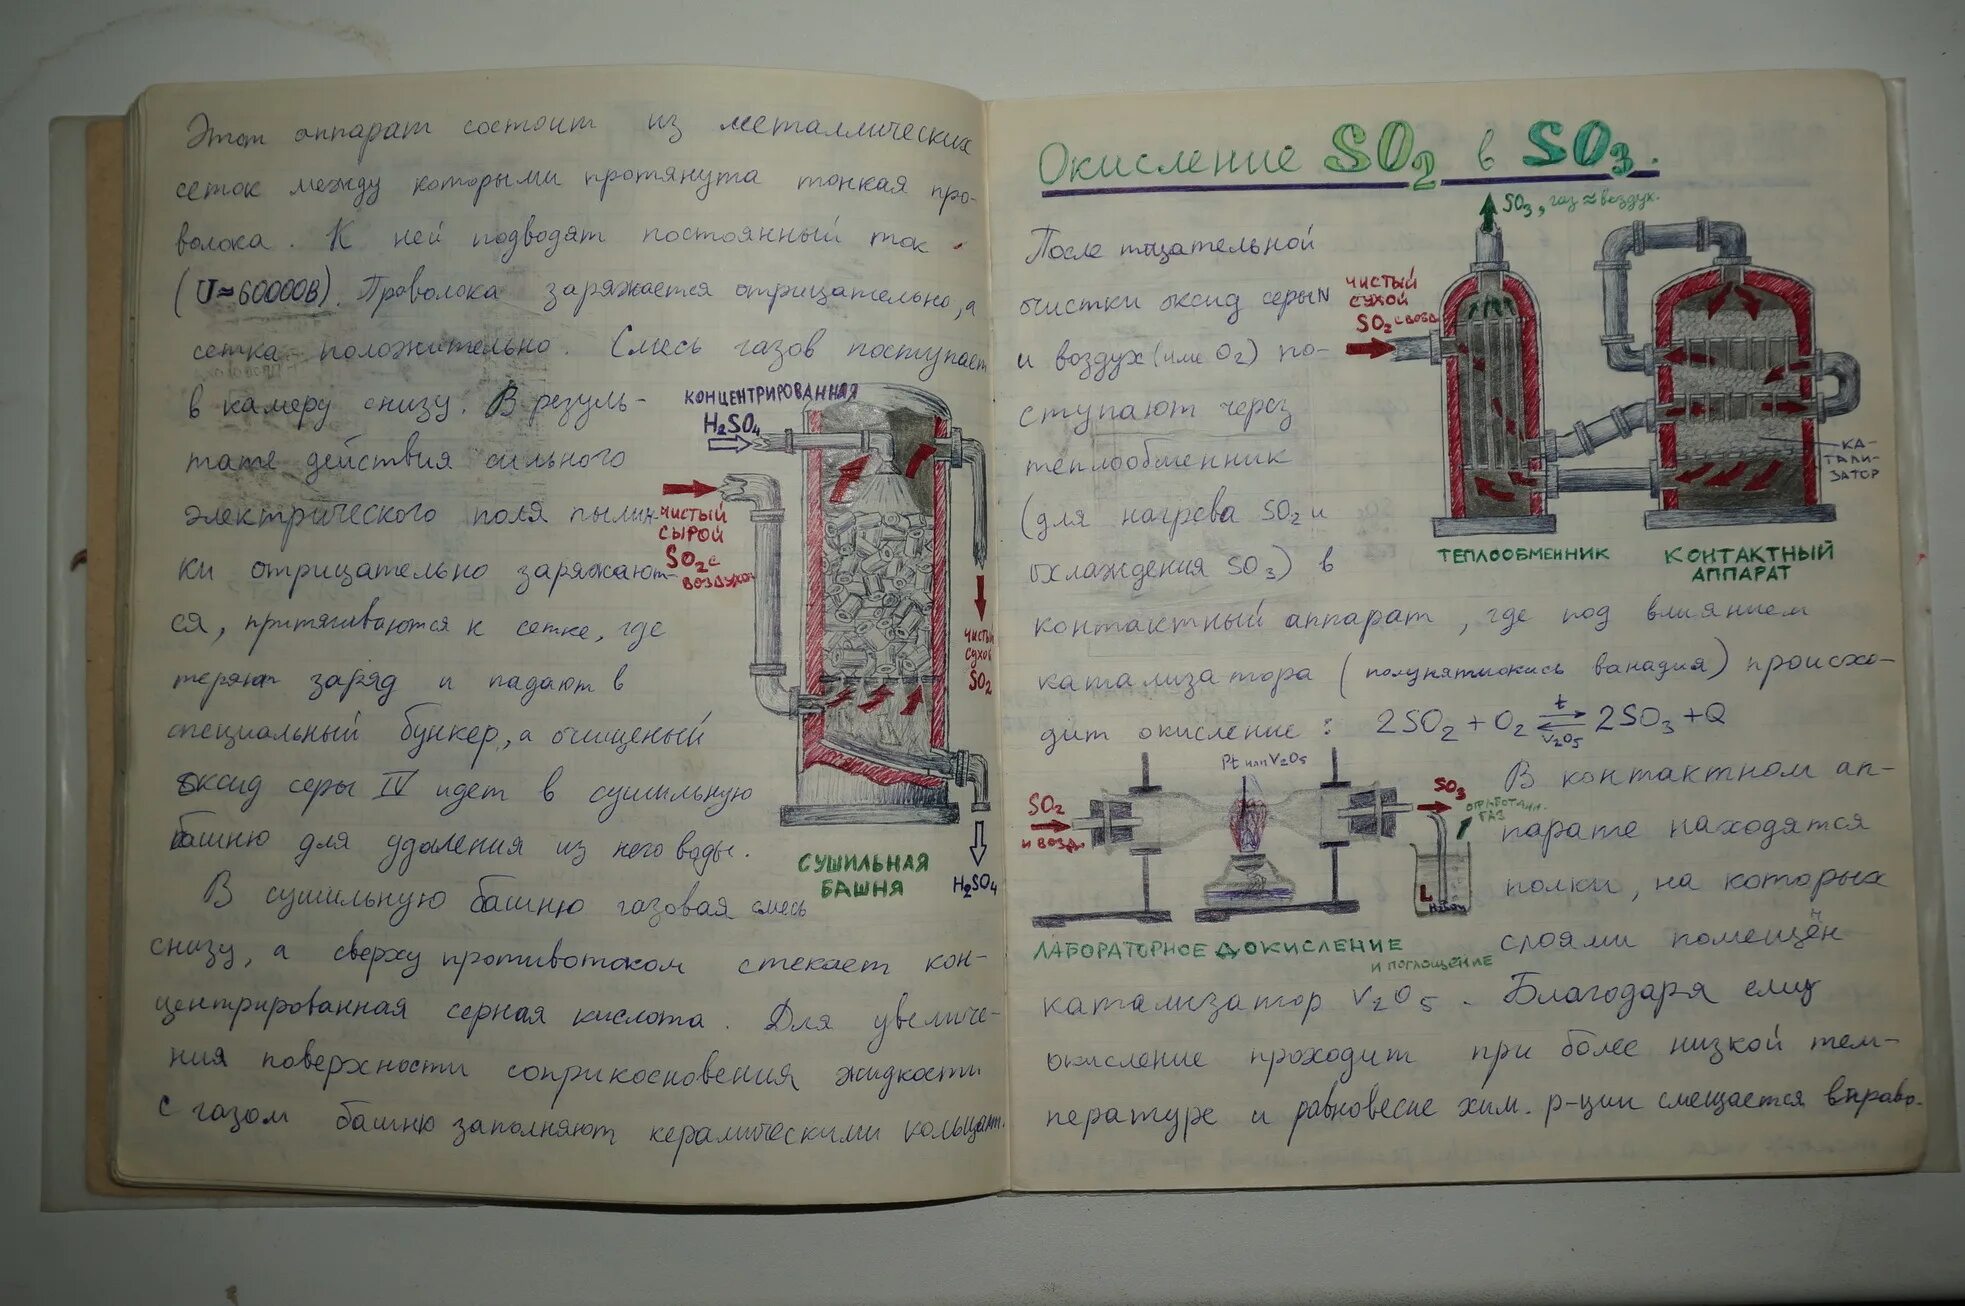 Этот аппарат состоит из металлических
сеток между которыми протянута тонкая про-
волока. К ней подводят постоянный ток
(U≈60000В). Проволока заряжается отрицательно, а
сетка положительно. Смесь газов поступает
в камеру снизу. В резуль-
тате действия сильного
электрического поля пылин-
ки отрицательно заряжают-
ся, притягиваются к сетке, где
теряют заряд и падают в
специальный бункер, а очищеный
оксид серы IV идет в сушильную
башню для удаления из него воды.
В сушильную башню газовая смесь
снизу, а сверху противотоком стекает кон-
центрированная серная кислота. Для увеличе-
ния поверхности соприкосновения жидкости
с газом башню заполняют керамическими кольцами.
КОНЦЕНТРИРОВАННАЯ
H₂SO₄
ЧИСТЫЙ
СЫРОЙ
SO₂ с
ВОЗДУХОМ
ЧИСТЫЙ
СУХОЙ
SO₂
СУШИЛЬНАЯ
БАШНЯ
H₂SO₄
Окисление SO₂ в SO₃.
После тщательной
очистки оксид серы IV
и воздух (или O₂) по-
ступают через
теплообменник
(для нагрева SO₂ и
охлаждения SO₃) в
контактный аппарат, где под влиянием
катализатора (полупятиокись ванадия) происхо-
дит окисление: 2SO₂ + O₂ t ⇄ V₂O₅ 2SO₃ + Q
SO₃, газ ≈ воздух.
ЧИСТЫЙ
СУХОЙ
SO₂ с ВОЗД
КА-
ТАЛИ-
ЗАТОР
ТЕПЛООБМЕННИК
КОНТАКТНЫЙ
АППАРАТ
Pt или V₂O₅
SO₂
и ВОЗД.
SO₃
ГАЗ
ЛАБОРАТОРНОЕ ДОКИСЛЕНИЕ
И ПОГЛОЩЕНИЕ
В контактном ап-
парате находятся
полки, на которых
слоями помещён
катализатор V₂O₅. Благодаря ему
окисление проходит при более низкой тем-
пературе и равновесие хим. р-ции смещается вправо.